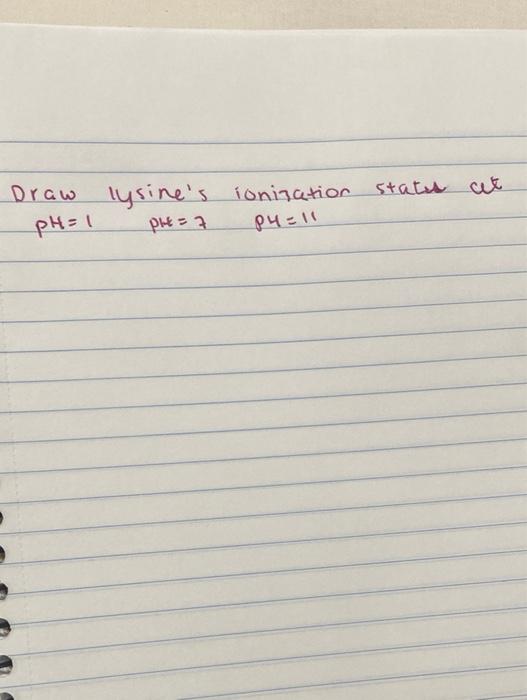 Draw lysine's ionization states at
pH=1 pH=7 pH=11